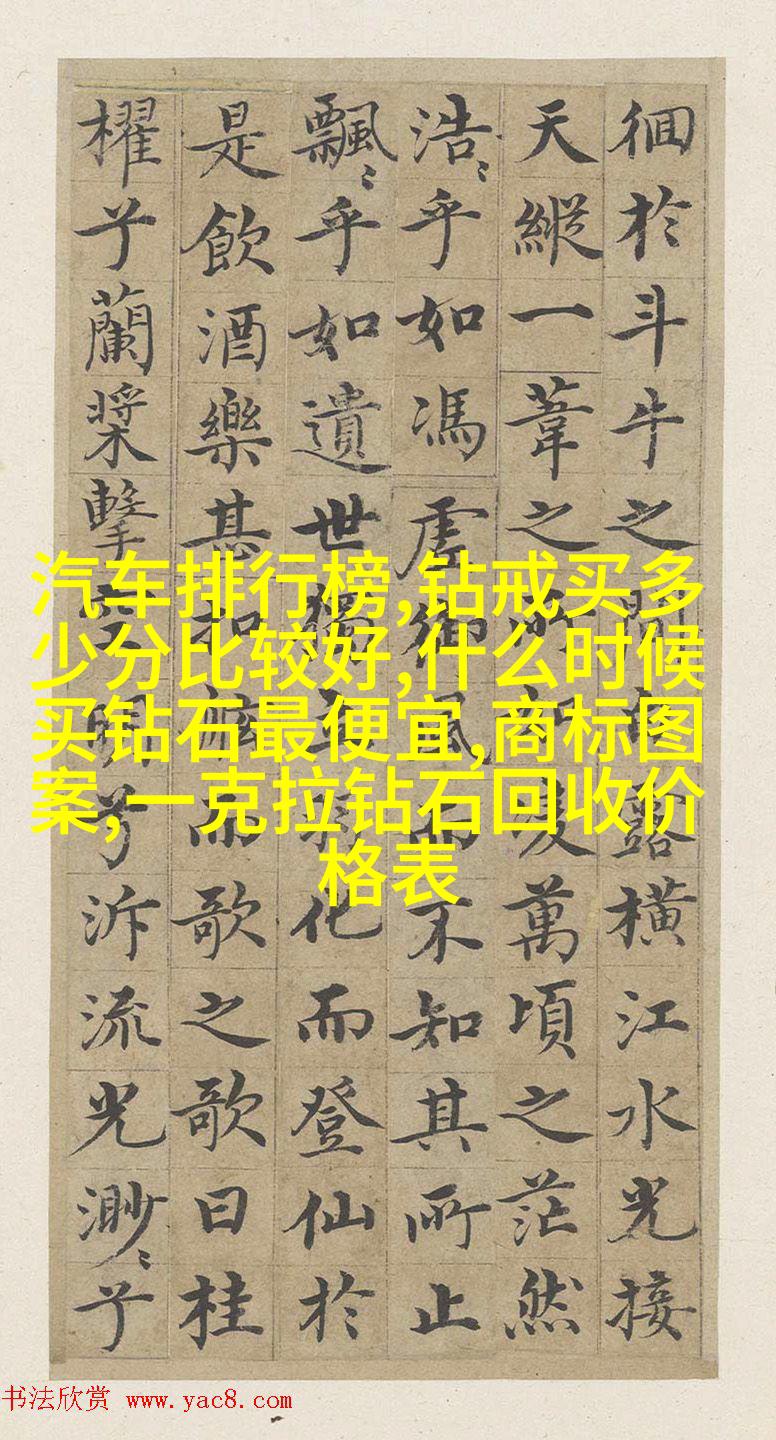 徊於斗牛之間露橫江水光接
天縱一葦之所萬頃之茫然
浩〻乎如馮虛御風而不知其所止
飄〻乎如遺世獨羽化而登仙於
是飲酒樂甚扣舷而歌之歌曰桂
櫂兮蘭槳擊空明兮泝流光渺〻兮
汽车排行榜,钻戒买多
少分比较好,什么时候
买钻石最便宜,商标图
案,一克拉钻石回收价
格表
书法欣赏 www.yac8.com